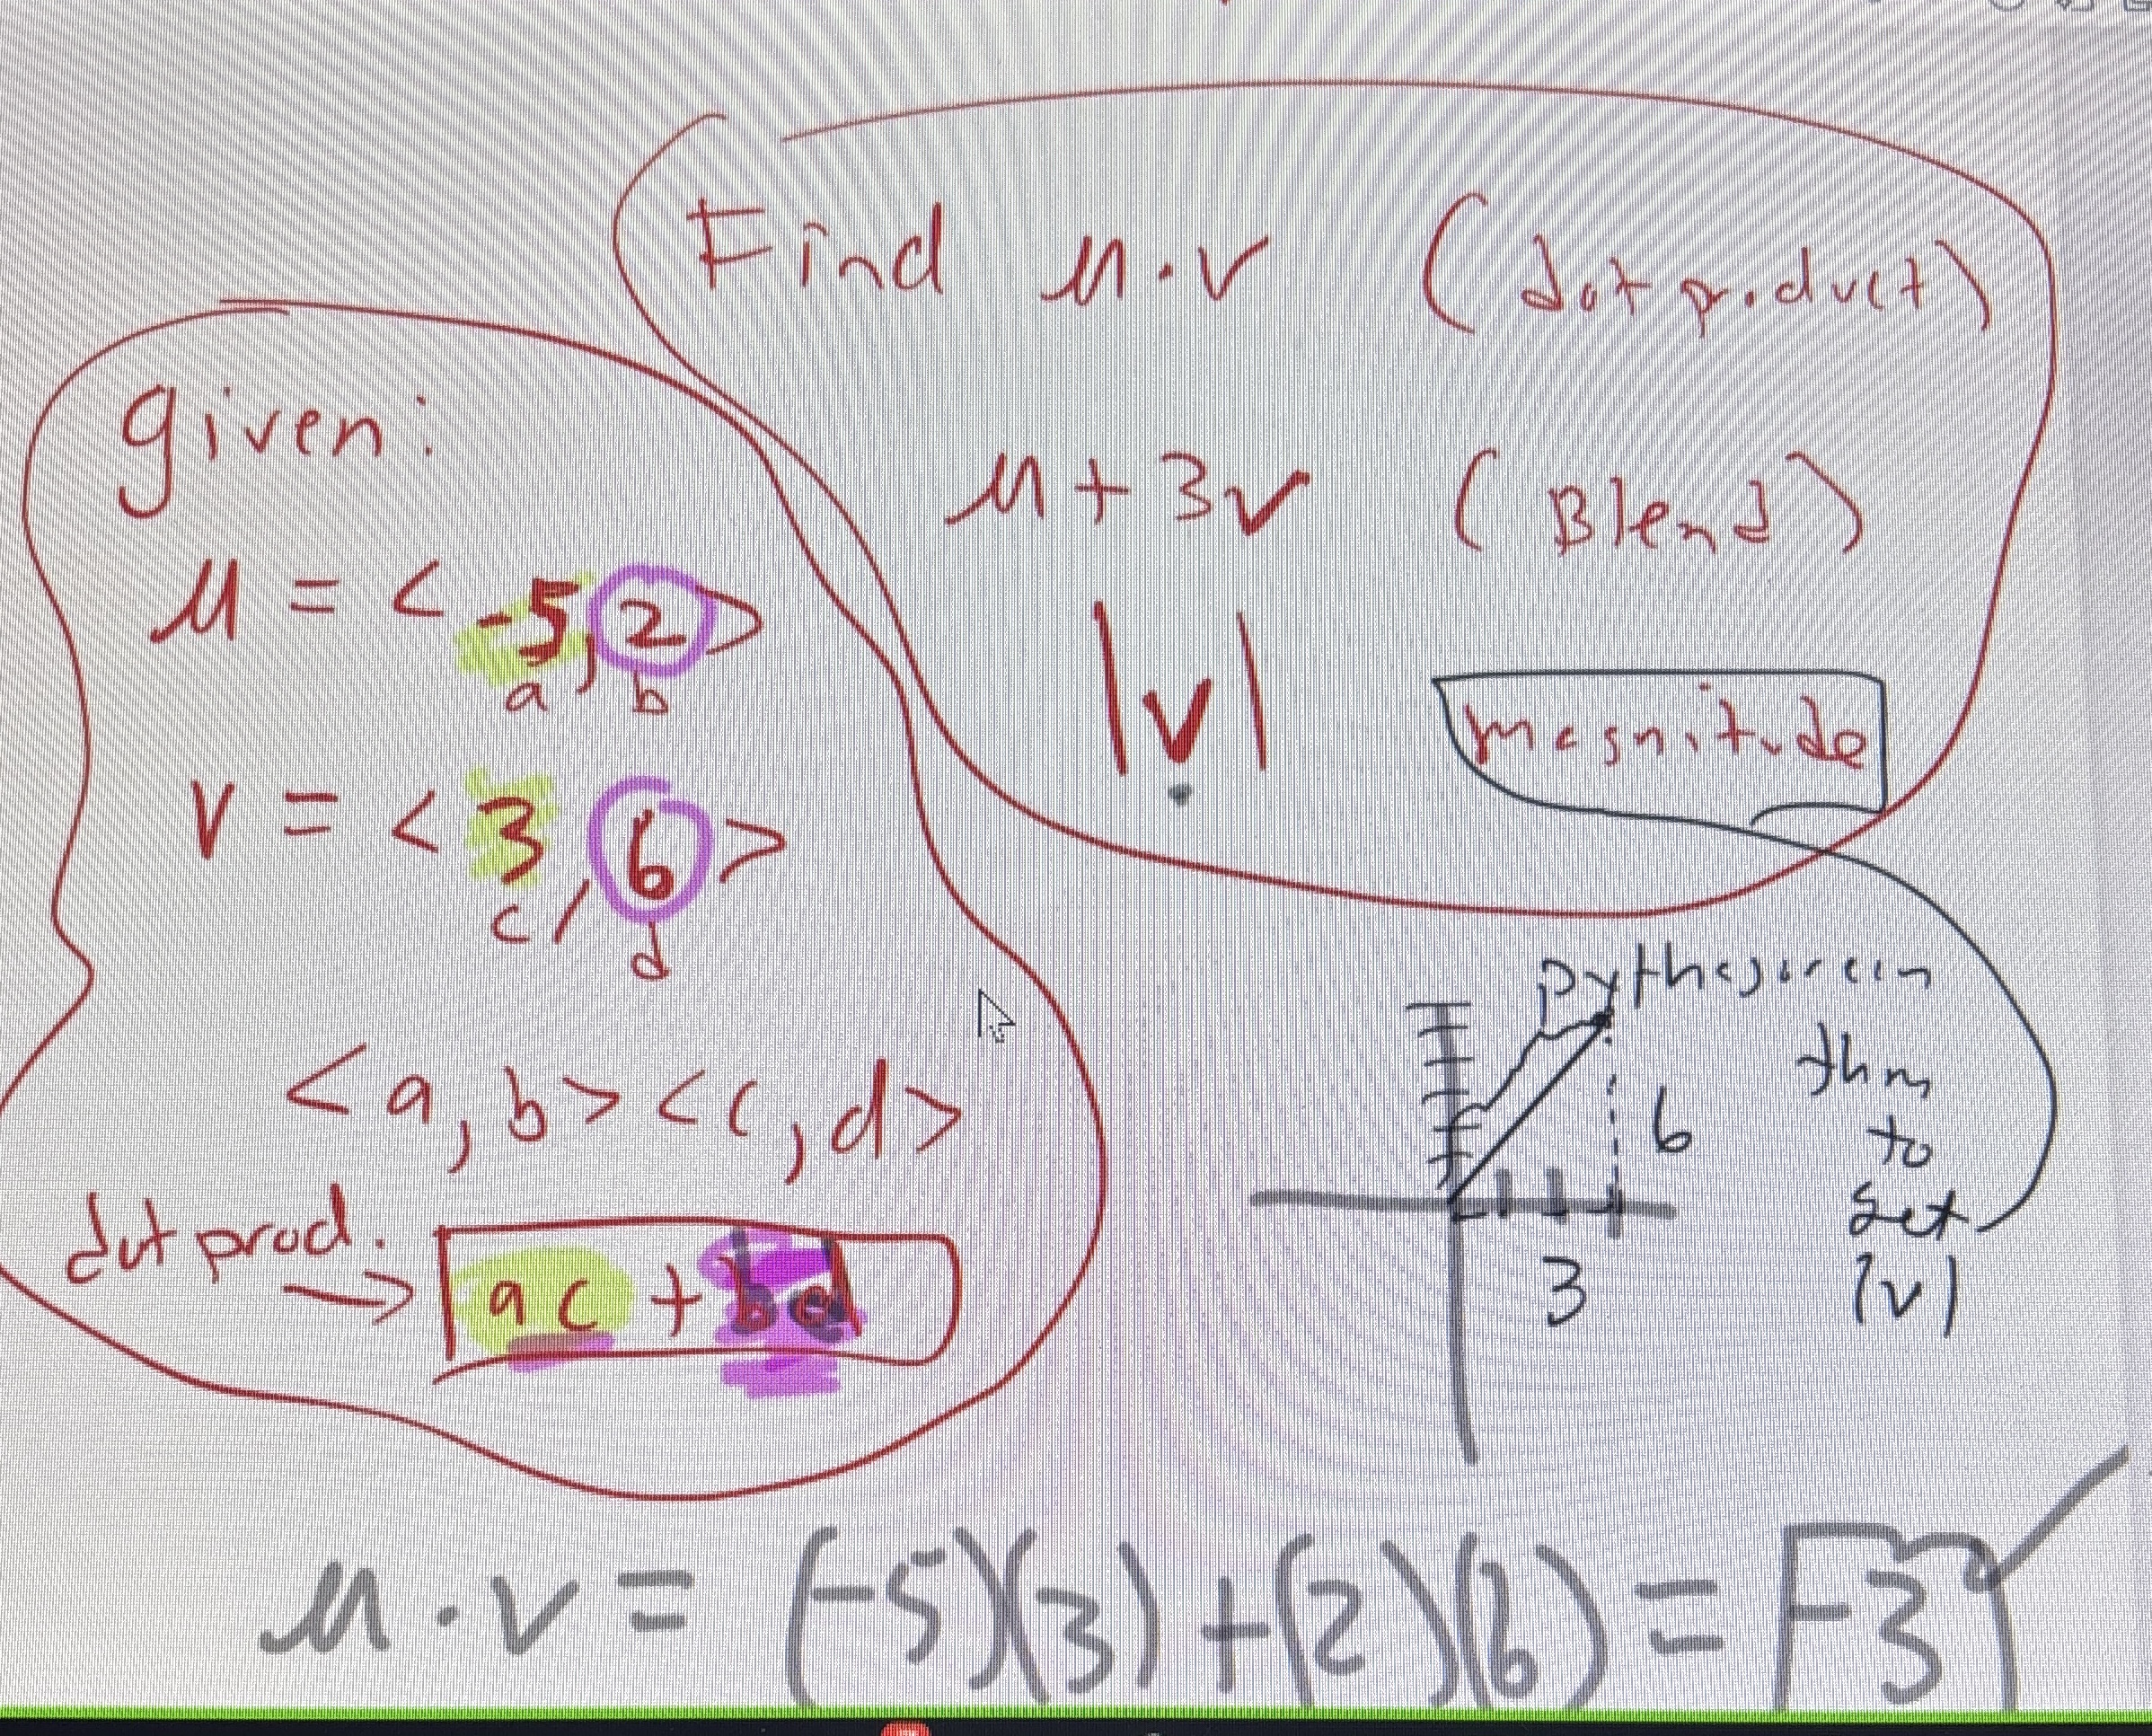 Find u · v (dot product)
u + 3v (Blend)
|v| magnitude
given:
u = < -5, 2 >
a b
v = < 3, 6 >
c d
<a, b> <c, d>
dot prod. → ac + bd
pythagorean
thm
to
get
|v|
6
3
u · v = (-5)(3) + (2)(6) = -3